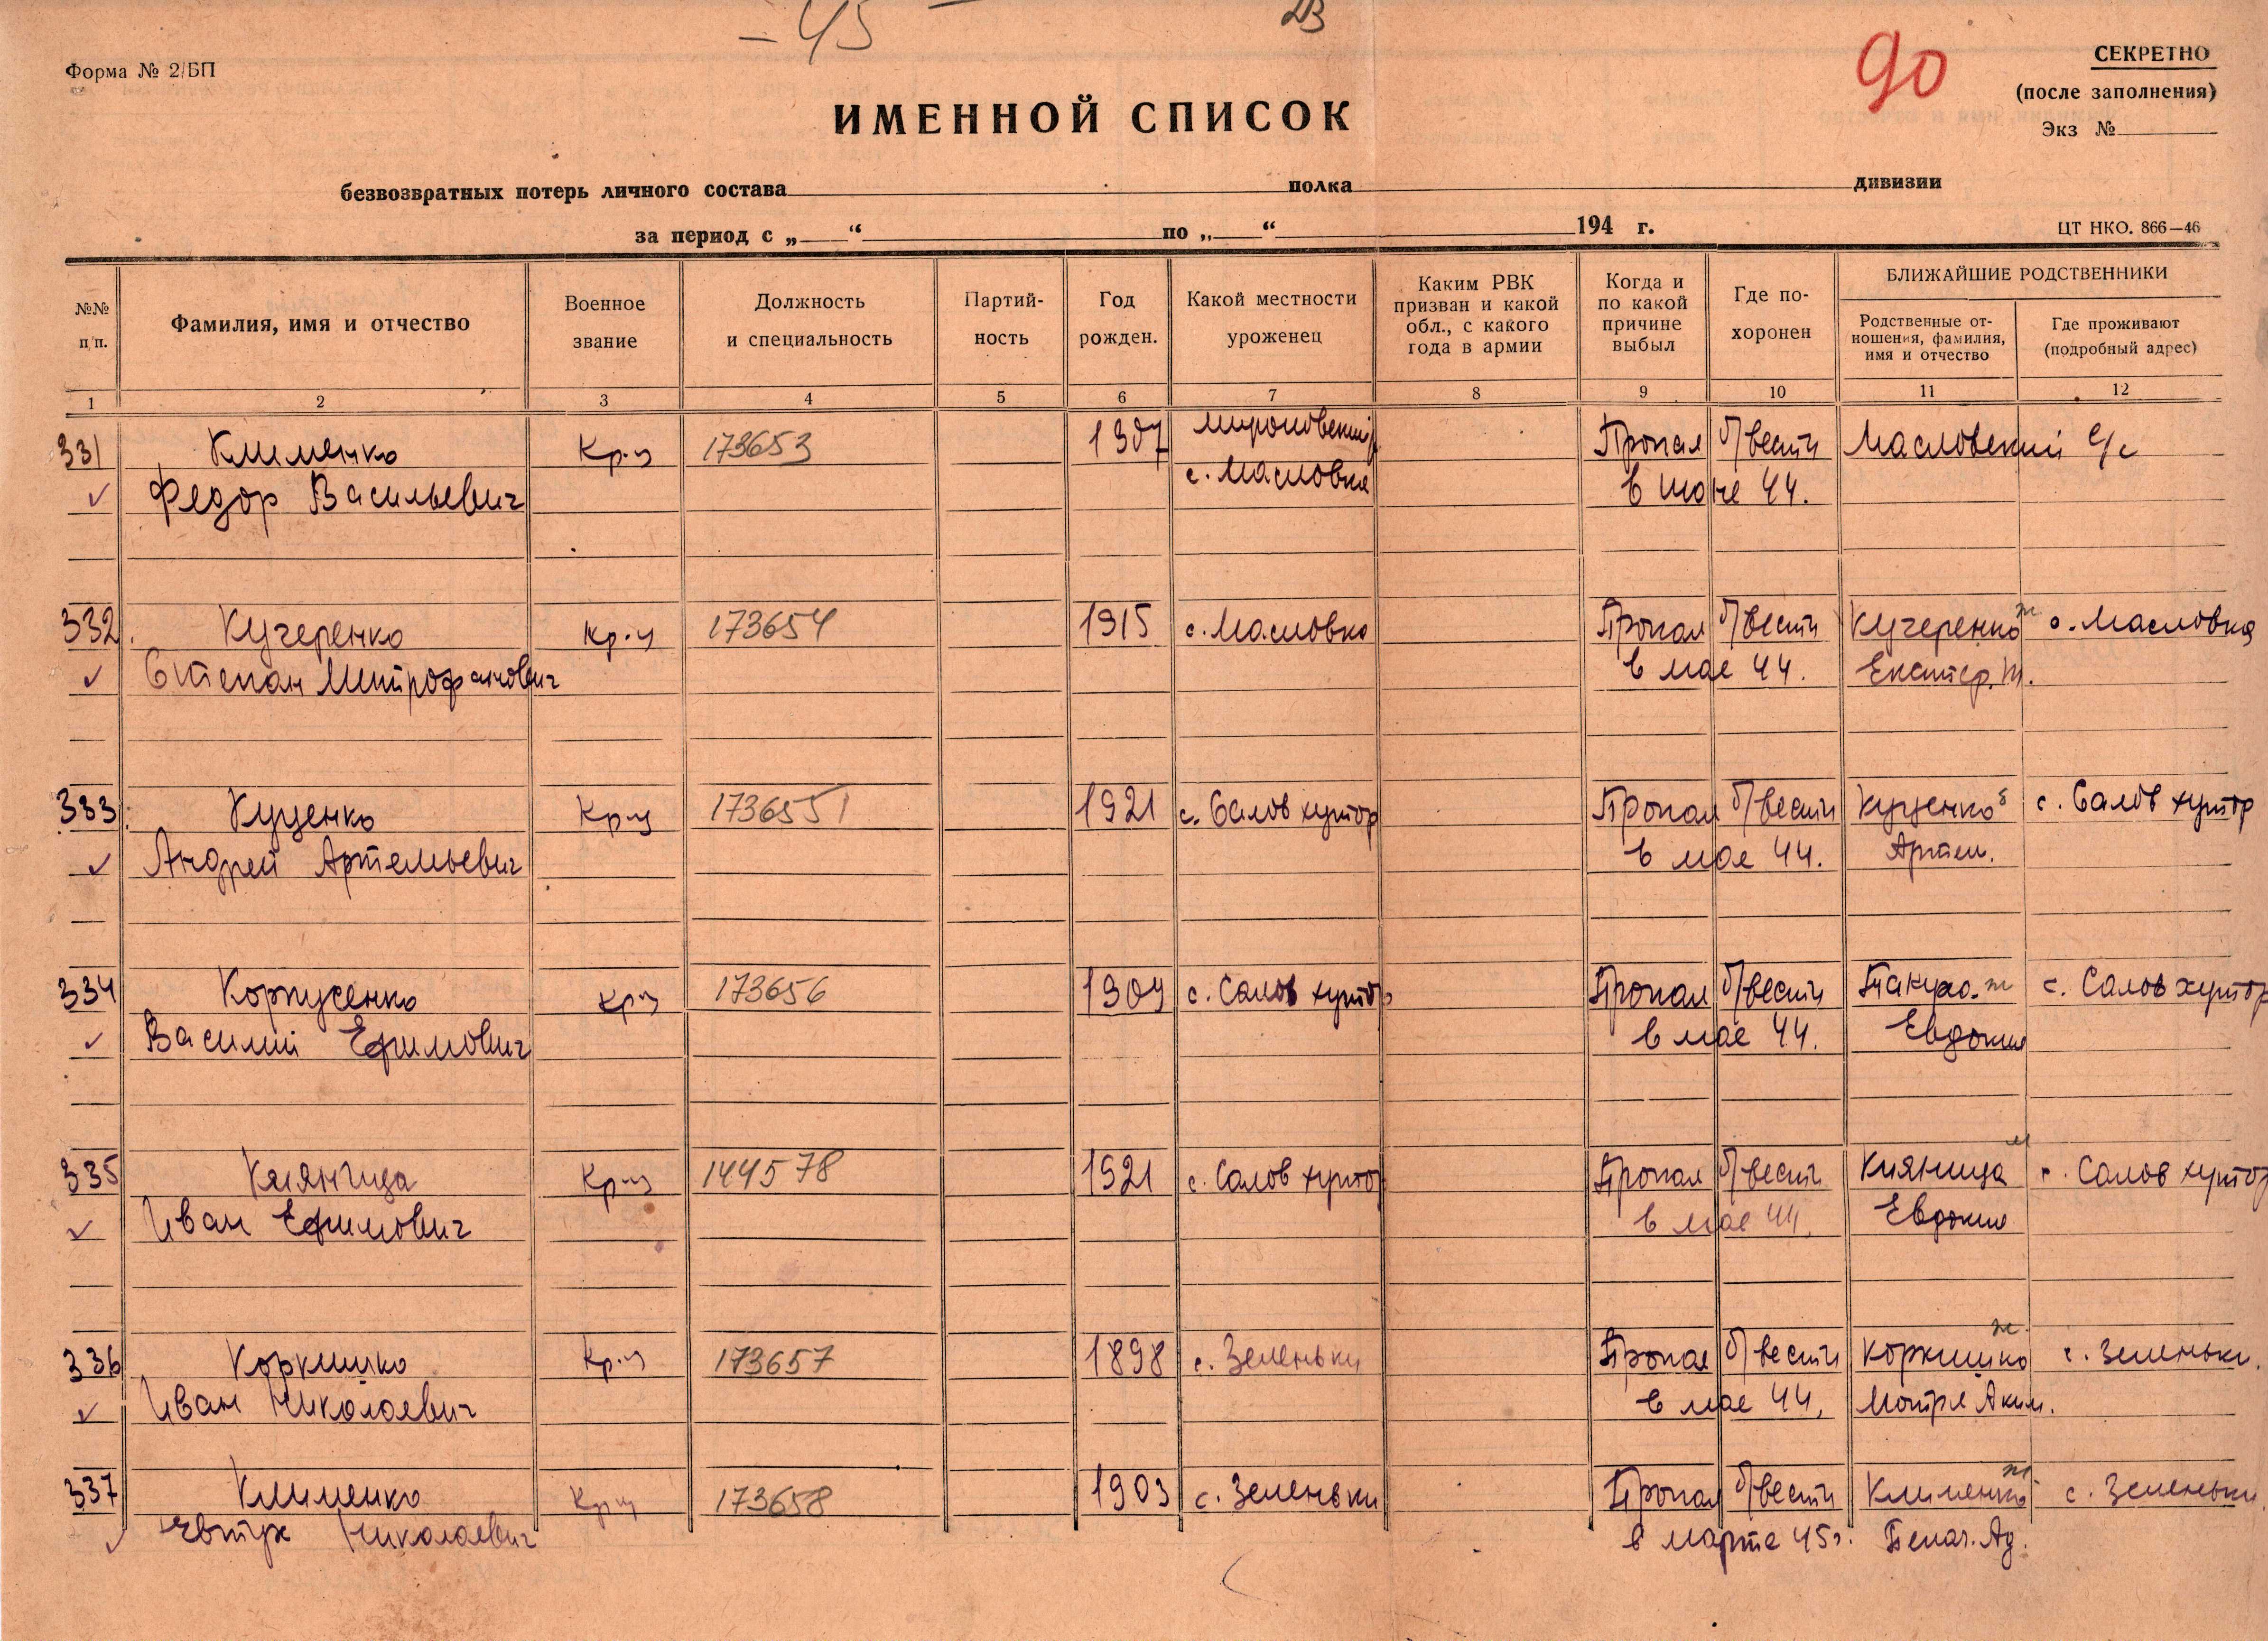 - 45 -
23
90
Форма № 2/БП
СЕКРЕТНО
(после заполнения)
Экз №
ИМЕННОЙ СПИСОК
безвозвратных потерь личного состава полка дивизии
за период с „ “ по „ “ 194 г.
ЦТ НКО. 866—46
№№ п/п.
Фамилия, имя и отчество
Военное звание
Должность и специальность
Партий-
ность
Год рожден.
Какой местности уроженец
Каким РВК
призван и какой
обл., с какого
года в армии
Когда и
по какой
причине
выбыл
Где по-
хоронен
БЛИЖАЙШИЕ РОДСТВЕННИКИ
Родственные от-
ношения, фамилия,
имя и отчество
Где проживают
(подробный адрес)
1 2 3 4 5 6 7 8 9 10 11 12
331 Клименко Кр-ц 173653 1907 Мироновский Пропал б/вести Масловский с/с
Федор Васильевич с. Масловка в июне 44.
332. Кучеренко Кр-ц 173654 1915 с. Масловка Пропал б/вести Кучеренко ж с. Масловка
Степан Митрофанович в мае 44. Екатер. М.
333. Куценко Кр-ц 173655 1921 с. Салов хутор Пропал б/вести Куценко б с. Салов хутор
Андрей Артемьевич в мае 44. Артем.
334 Корпусенко Кр-ц 173656 1909 с. Салов хутор Пропал б/вести ж с. Салов хутор
Василий Ефимович в мае 44. Евдокия
335 Княница Кр-ц 144578 1921 с. Салов хутор Пропал б/вести Княница м с. Салов хутор
Иван Ефимович в мае 44. Евдокия
336 Коркишко Кр-ц 173657 1898 с. Зеленьки Пропал б/вести Коркишко ж. с. Зеленьки.
Иван Николаевич в мае 44. Мотря Аким.
337 Клименко Кр-ц 173658 1903 с. Зеленьки Пропал б/вести Клименко ж с. Зеленьки.
Евтух Николаевич в марте 45г.